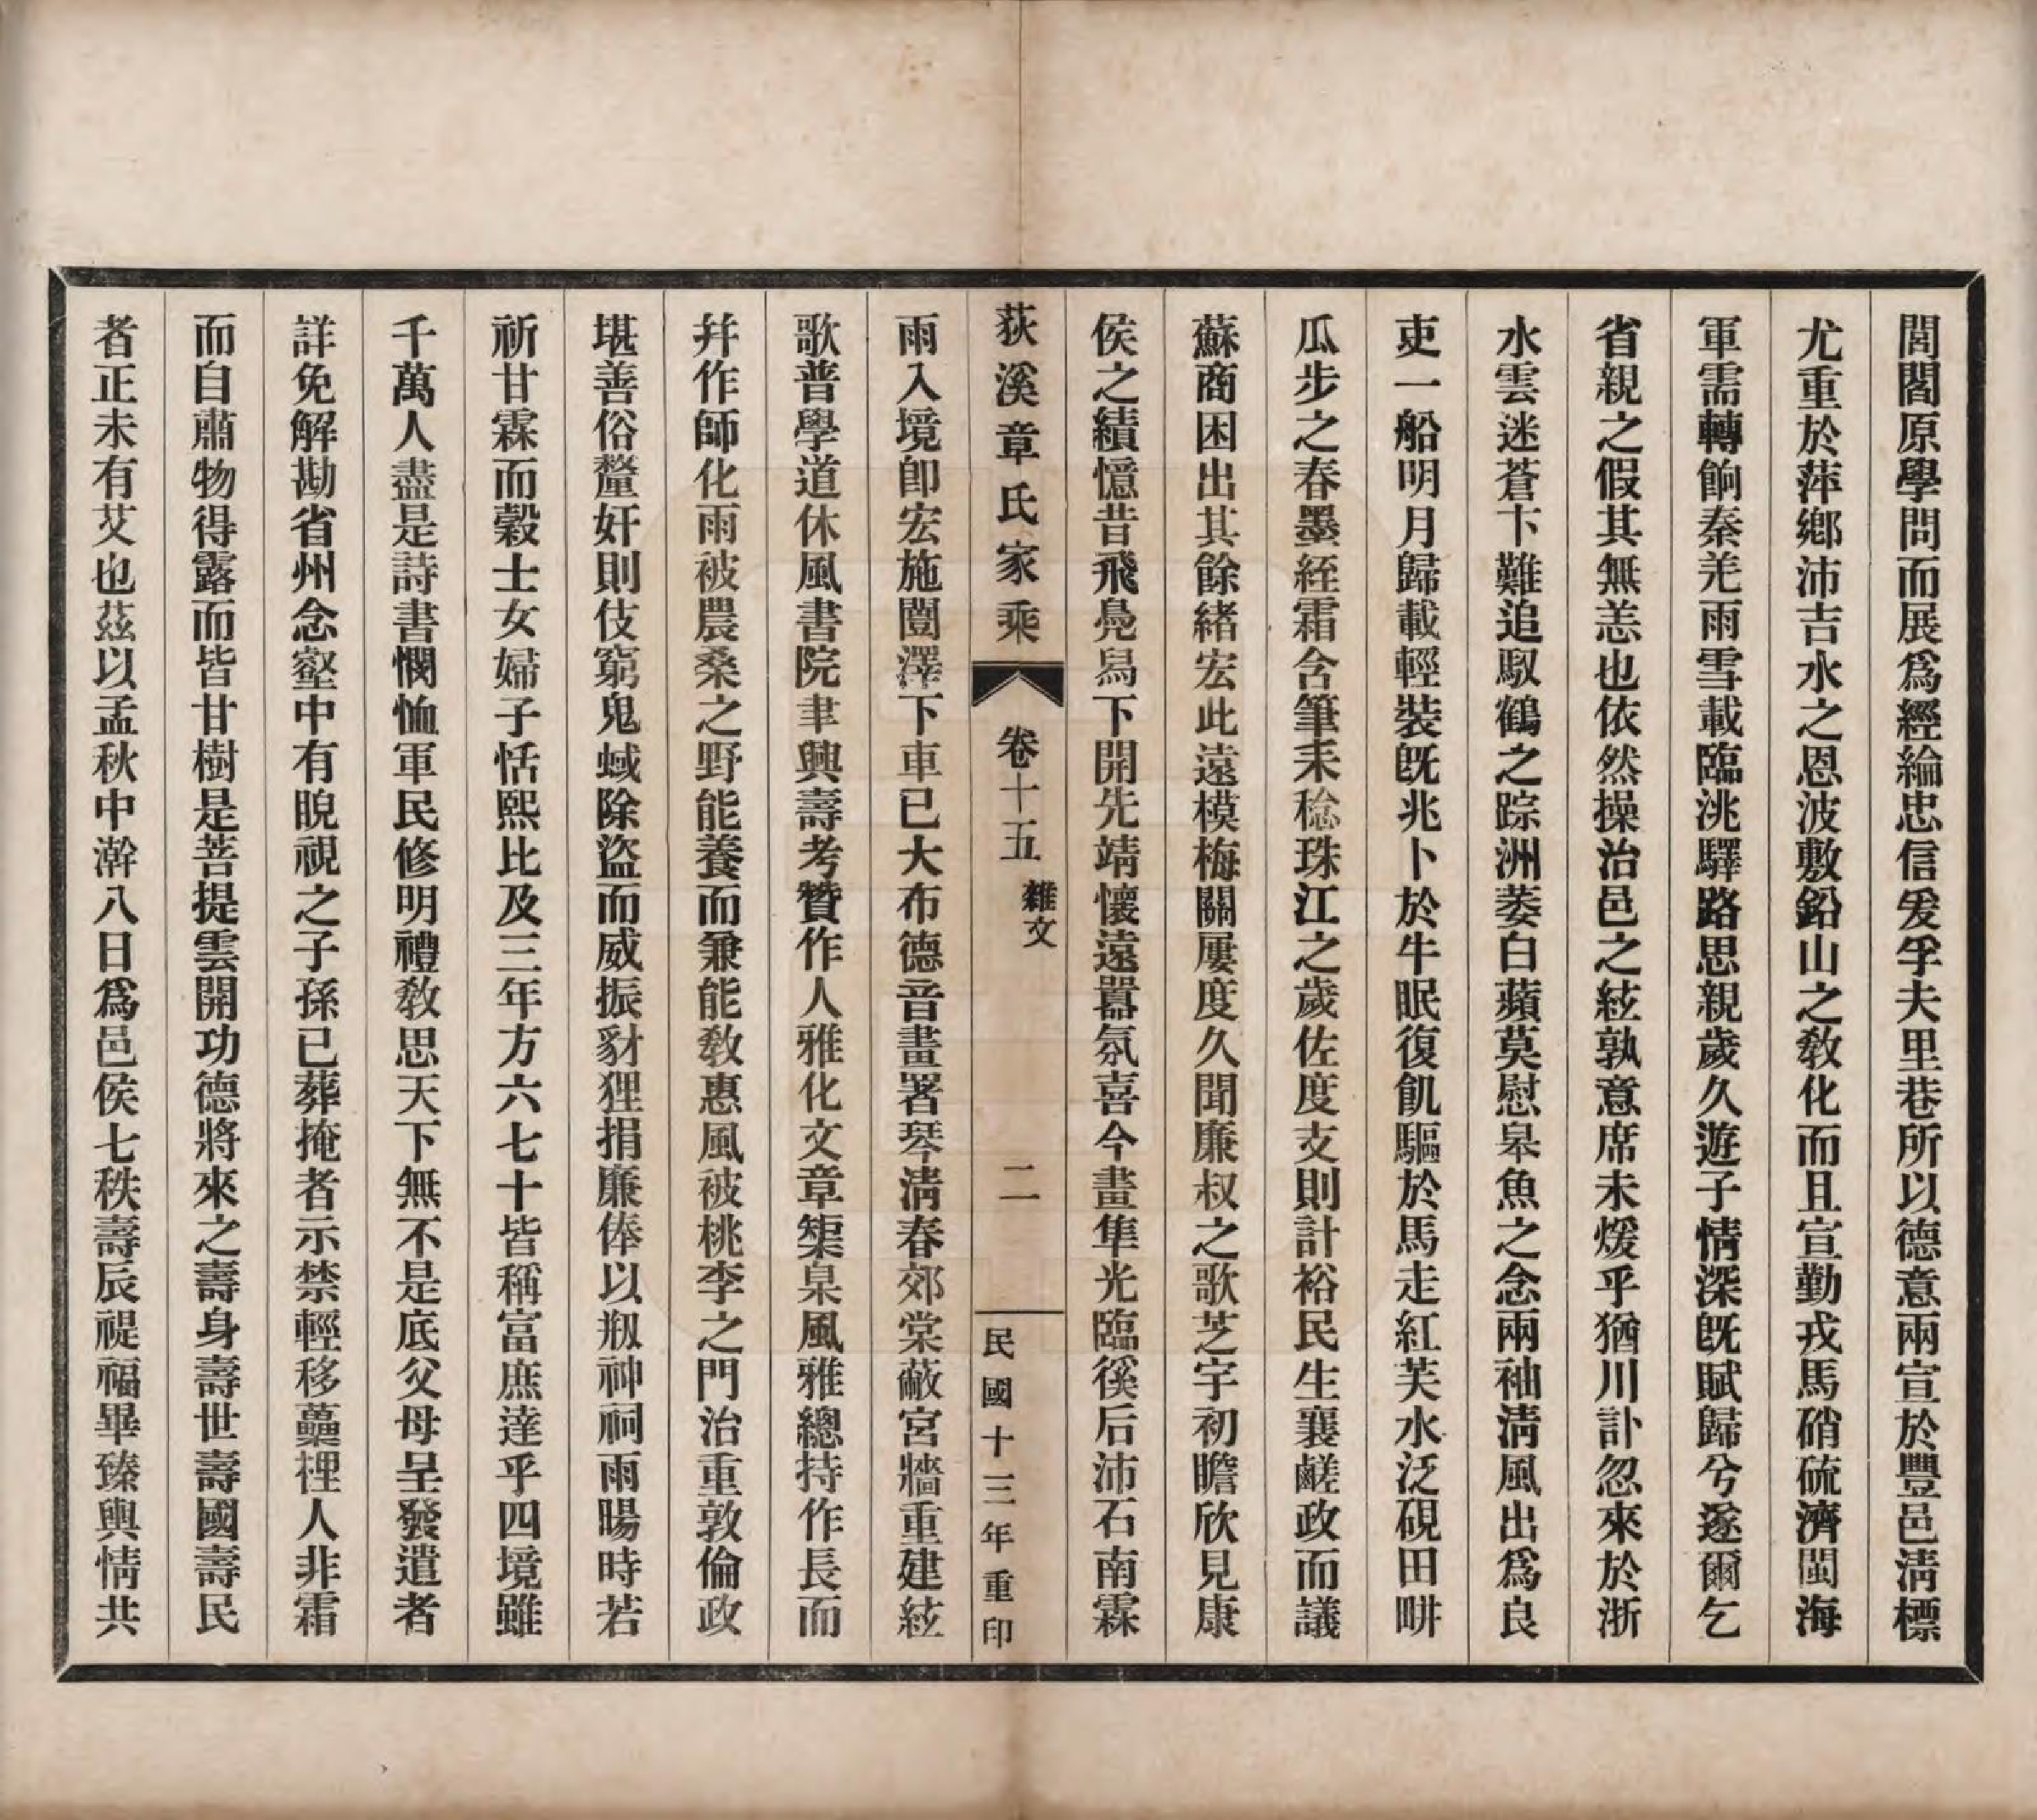 閭閻原學問而展爲經綸忠信爰孚夫里巷所以德意兩宣於豐邑淸標
尤重於萍鄉沛吉水之恩波敷鉛山之敎化而且宣勤戎馬硝硫濟閩海
軍需轉餉秦羌雨雪載臨洮驛路思親歲久遊子情深旣賦歸兮遂爾乞
省親之假其無恙也依然操治邑之絃孰意席未煖乎猶川訃忽來於浙
水雲迷蒼卞難追馭鶴之踪洲萎白蘋莫慰皋魚之念兩袖淸風出爲良
吏一船明月歸載輕裝旣兆卜於牛眠復飢驅於馬走紅芙水泛硯田畊
瓜步之春墨絰霜含筆耒稔珠江之歲佐度支則計裕民生襄鹺政而議
蘇商困出其餘緖宏此遠模梅關屢度久聞廉叔之歌芝宇初瞻欣見康
侯之績憶昔飛鳧舄下開先靖懷遠囂氛喜今畫隼光臨徯后沛石南霖
荻溪章氏家乘 卷十五 雜文 二 民國十三年重印
雨入境卽宏施闓澤下車已大布德音畫署琴淸春郊棠蔽宮牆重建絃
歌普學道休風書院聿興壽考贊作人雅化文章榘臬風雅總持作長而
幷作師化雨被農桑之野能養而兼能敎惠風被桃李之門治重敦倫政
堪善俗釐奸則伎窮鬼蜮除盜而威振豺狸捐廉俸以剏神祠雨暘時若
祈甘霖而穀士女婦子恬熙比及三年方六七十皆稱富庶達乎四境雖
千萬人盡是詩書憫恤軍民修明禮敎思天下無不是底父母呈發遣者
詳免解勘省州念壑中有睨視之子孫已葬掩者示禁輕移蘽梩人非霜
而自肅物得露而皆甘樹是菩提雲開功德將來之壽身壽世壽國壽民
者正未有艾也茲以孟秋中澣八日爲邑侯七秩壽辰禔福畢臻輿情共